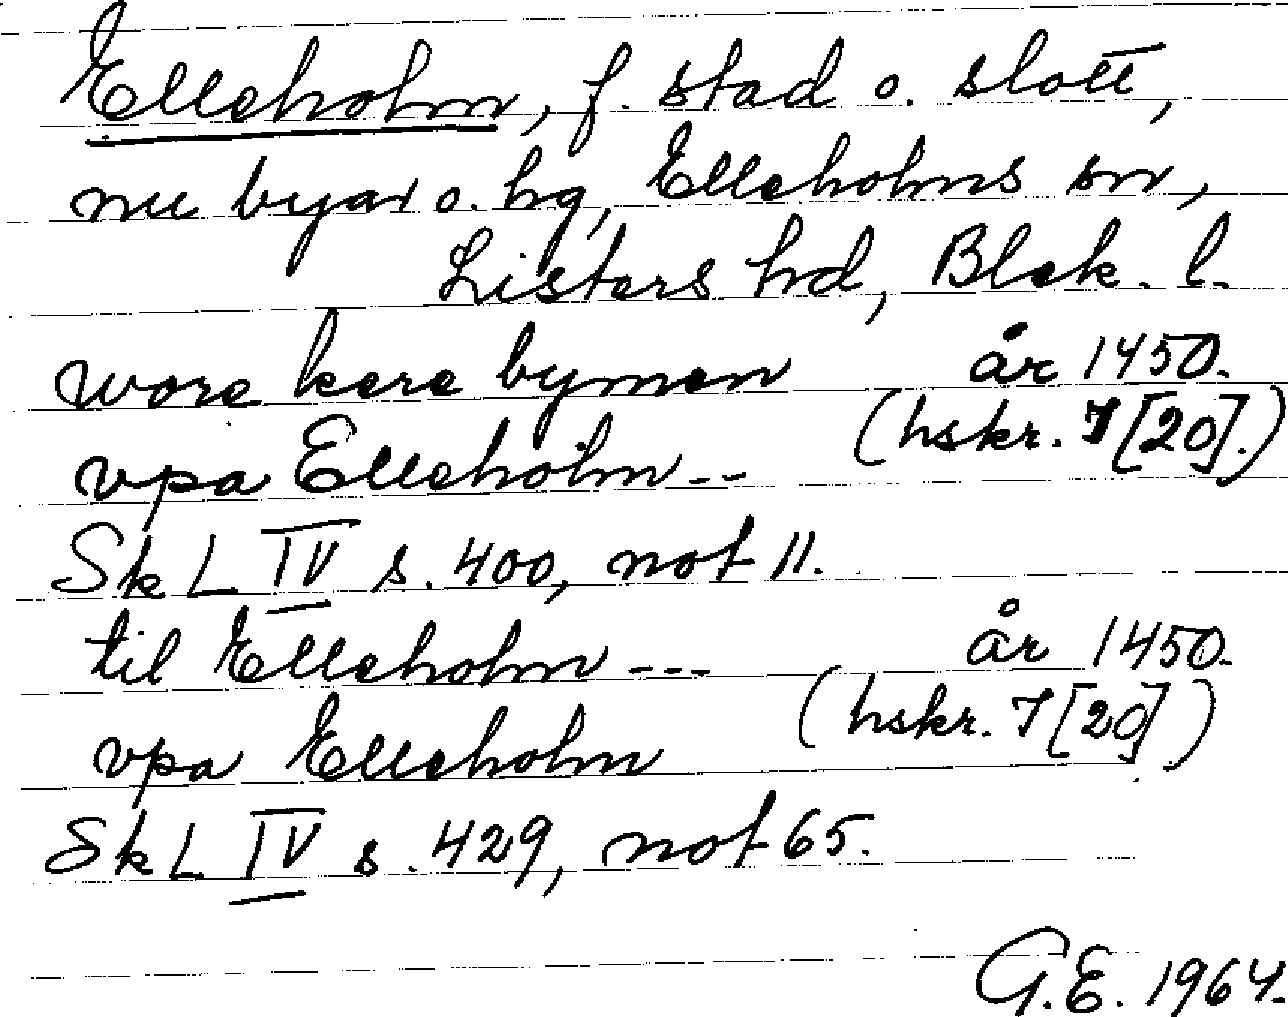 Elleholm, f. stad o. slott,
nu byar o. hg, Elleholms sn,
Listers hd, Blek. l.
wore kere bymen år 1450.
vpa Elleholm -- (hskr. 7 [20].)
Sk L IV s. 400, not 11.
til Elleholm --- år 1450.
vpa Elleholm (hskr. 7 [20])
Sk L IV s. 429, not 65.
G.E. 1964.